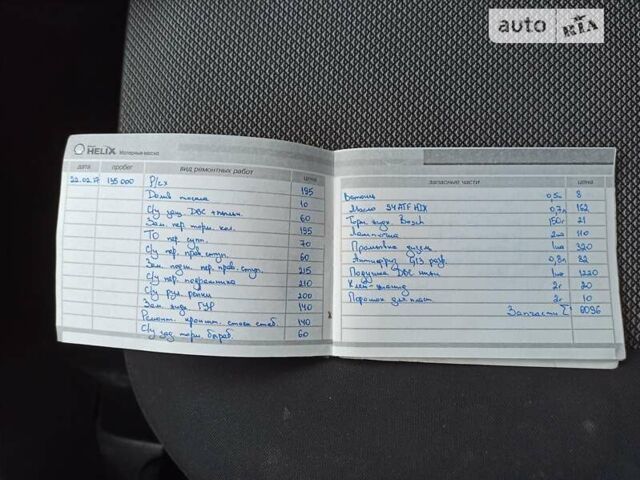 auto RIA
HELIX Моторные масла
дата пробег вид ремонтных работ цена
22.02.17 135 000 Р/сх 195
Долив масла 10
С/у защ. ДВС + пыльн. 60
Зам. пер. торм. кол. 195
ТО пер. супп. 70
С/у пер. прав. ступ. 60
Зам. подш. пер. прав. ступ. 215
С/у пер. подрамника 210
С/у рул. рейки 200
Зам. жидк. ГУР 140
Ремонт. кроншт. стойки стаб. 140
С/у зад. торм. бараб. 60
запасные части цена
0,5л 8
Масло ATF 0,7л 162
Торм. жидк. Bosch 150г 21
Лампочка 2шт 110
1шт 320
Антифриз G13 0,8л 82
Подушка ДВС 1шт 1220
2г 20
Порошок для пласт. 2г 10
Запчасти Σ 6096